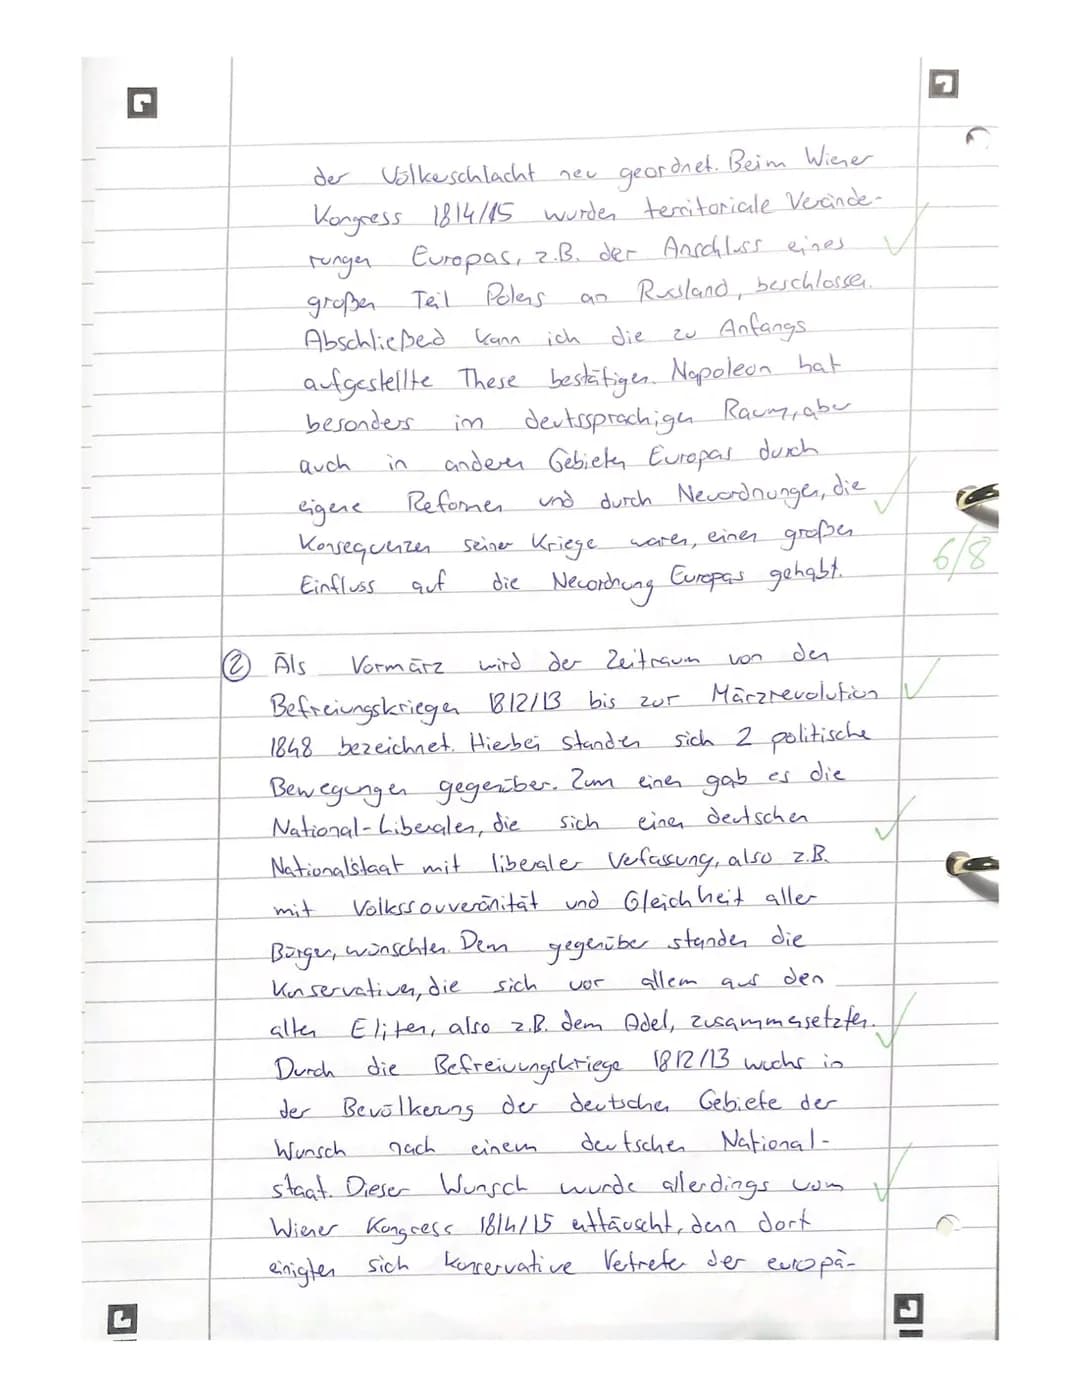 der Völkeschlacht neu geordnet. Beim Wiener
Kongress 1814/15 wurden territoriale Verände-
rungen Europas, z.B. der Anschluss eines
großen Teil Polens an Russland, beschlossen.
Abschließed kann ich die zu Anfangs
aufgestellte These bestätigen. Napoleon hat
besonders im deutssprachigen Raum, aber
auch in anderen Gebieten Europas durch
eigene Reformen und durch Neuordnungen, die
Konsequenzen seiner Kriege waren, einen großen
Einfluss auf die Neuordnung Europas gehabt.
6/8
② Als Vormärz wird der Zeitraum von den
Befreiungskriegen 1812/13 bis zur Märzrevolution
1848 bezeichnet. Hierbei standen sich 2 politische
Bewegungen gegenüber. Zum einen gab es die
National-Liberalen, die sich einen deutschen
Nationalstaat mit liberaler Verfassung, also z.B.
mit Volkssouveränität und Gleichheit aller
Bürger, wünschten. Dem gegenüber standen die
Konservativen, die sich vor allem aus den
alten Eliten, also z.B. dem Adel, zusammensetzten.
Durch die Befreiuungskriege 1812/13 wuchs in
der Bevölkerung der deutschen Gebiete der
Wunsch nach einem deutschen National-
staat. Dieser Wunsch wurde allerdings vom
Wiener Kongress 1814/15 enttäuscht, denn dort
einigten sich konservative Vertreter der europä-